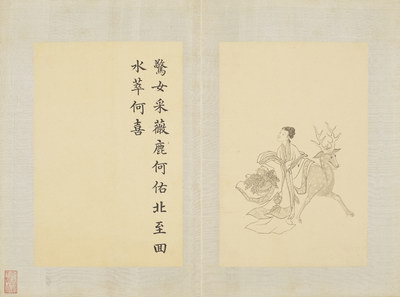 驚女采薇鹿何佑北至回
水萃何喜